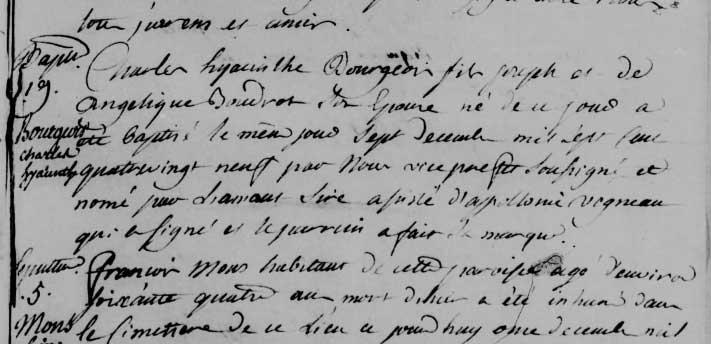 Bapte.
19.
Bourgeois
charles
hyacinthe
Charles hyacinthe Bourgeois fils joseph et de
angelique Boudrot son Epouse né de ce jour a
eté baptisé le mème jour sept decembre mil sept cent
quatrevingt neuf par Nous vice prefet soussigné et
nomé par Lamant Sire assisté d'apollonie vigneau
qui a signé et le parrein a fait sa marque.
sepulture.
.5.
Mons
francois Mons habitant de cette paroisse agé d'environ
soixante quatre ans mort d'hier a été inhumé dans
le Cimetiere de ce Lieu ce jourdhuy onze decembre mil